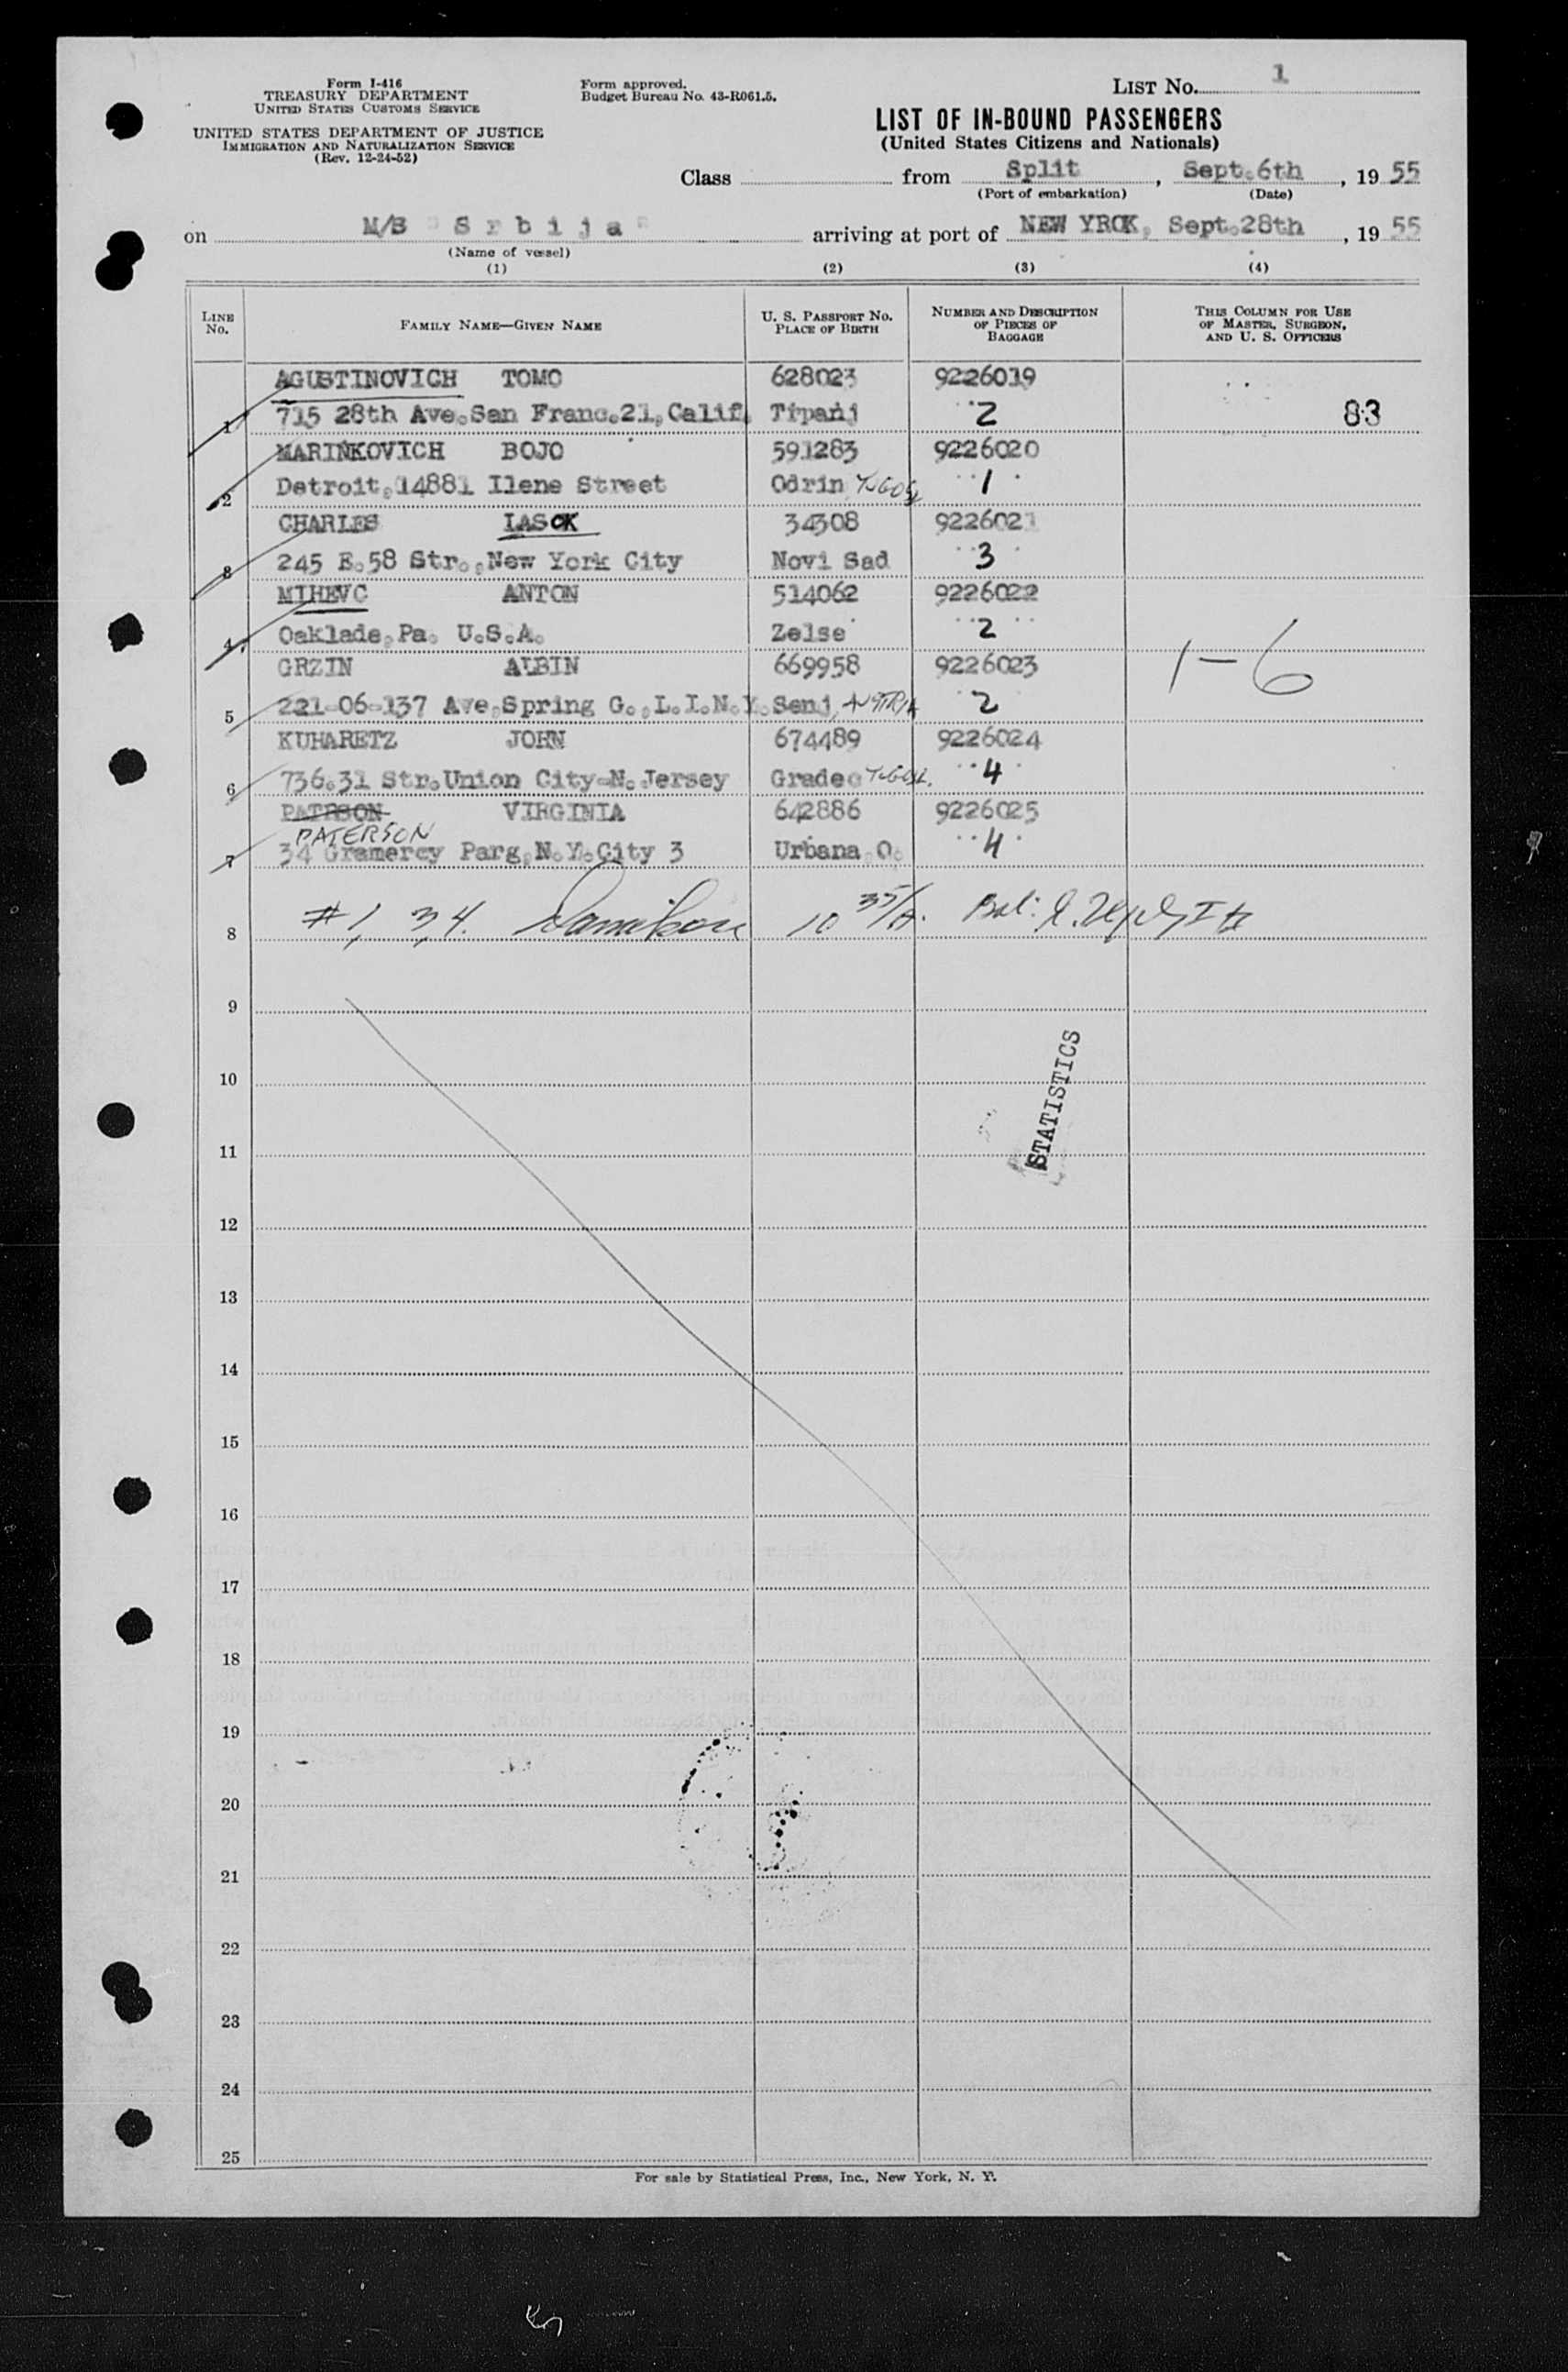 Form I-416
TREASURY DEPARTMENT
UNITED STATES CUSTOMS SERVICE
UNITED STATES DEPARTMENT OF JUSTICE
IMMIGRATION AND NATURALIZATION SERVICE
(Rev. 12-24-52)
Form approved.
Budget Bureau No. 43-R061.5.
LIST NO. 1
LIST OF IN-BOUND PASSENGERS
(United States Citizens and Nationals)
Class from Split, Sept.6th, 19 55
(Port of embarkation) (Date)
on M/B "Srbija" arriving at port of NEW YROK, Sept.28th, 19 55
(Name of vessel)
(1) (2) (3) (4)
LINE NO. FAMILY NAME—GIVEN NAME U. S. PASSPORT NO. PLACE OF BIRTH NUMBER AND DESCRIPTION OF PIECES OF BAGGAGE THIS COLUMN FOR USE OF MASTER, SURGEON, AND U. S. OFFICERS
AGUSTINOVICH TOMO 628023 9226019
1 715 28th Ave.San Franc.21,Calif. Tipanj 2 83
MARINKOVICH BOJO 591283 9226020
2 Detroit,14881 Ilene Street Odrin YUGOSL 1
CHARLES LASCK 34308 9226021
3 245 E.58 Str.,New York City Novi Sad 3
MIHEVC ANTON 514062 9226022
4 Oaklade,Pa. U.S.A. Zelse 2
GRZIN ALBIN 669958 9226023 1-6
5 221-06-137 Ave,Spring G.,L.I.N.Y. Senj, AUSTRIA 2
KUHARETZ JOHN 674489 9226024
6 736.31 Str.Union City-N.Jersey Gradec YUGOSL. 4
PATRSON VIRGINIA 642886 9226025
PATERSON
7 34 Gramercy Parg,N.Y.City 3 Urbana,O. 4
8 #1, 3,4. 10 35/A. Bal:
9
10
STATISTICS
11
12
13
14
15
16
17
18
19
20
21
22
23
24
25
For sale by Statistical Press, Inc., New York, N. Y.